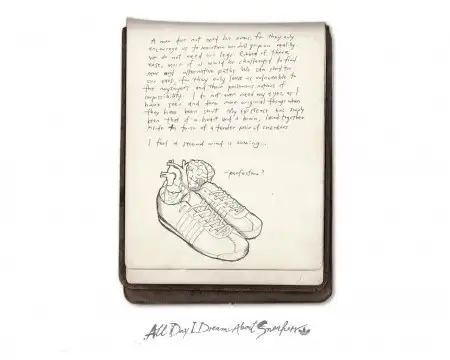 A man does not need his arms, for they only
encourage us to maintain our dull grip on reality.
We do not need our legs. Rid of these
most of us would be challenged to find
new and alternative paths. We can shed
our ears, for they only leave us vulnerable to
the naysayers and their poisonous notions of
impossibility. I do not even need my eyes, as I
have seen and done more original things when
they have been shut. My existence has simply
been that of a heart and a brain, laced together
inside the form of a tender pair of sneakers
I feel a second wind is coming...
-perfection?
All Day I Dream About Sneakers